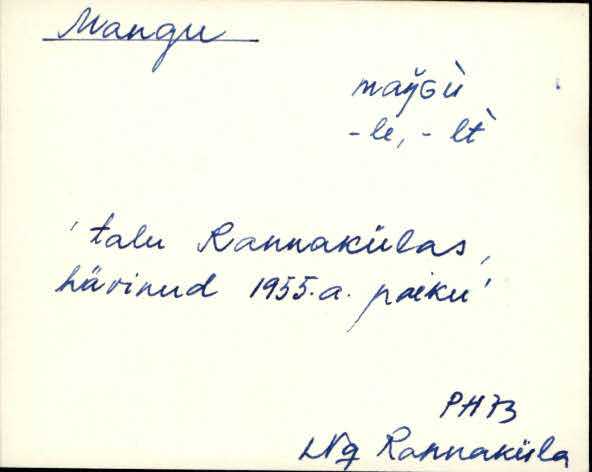 Mangu
maŋ̆Gù
-le, -lt̀
'talu Rannakülas,
hävinud 1955.a. paiku'
PH 73
LNg Rannaküla